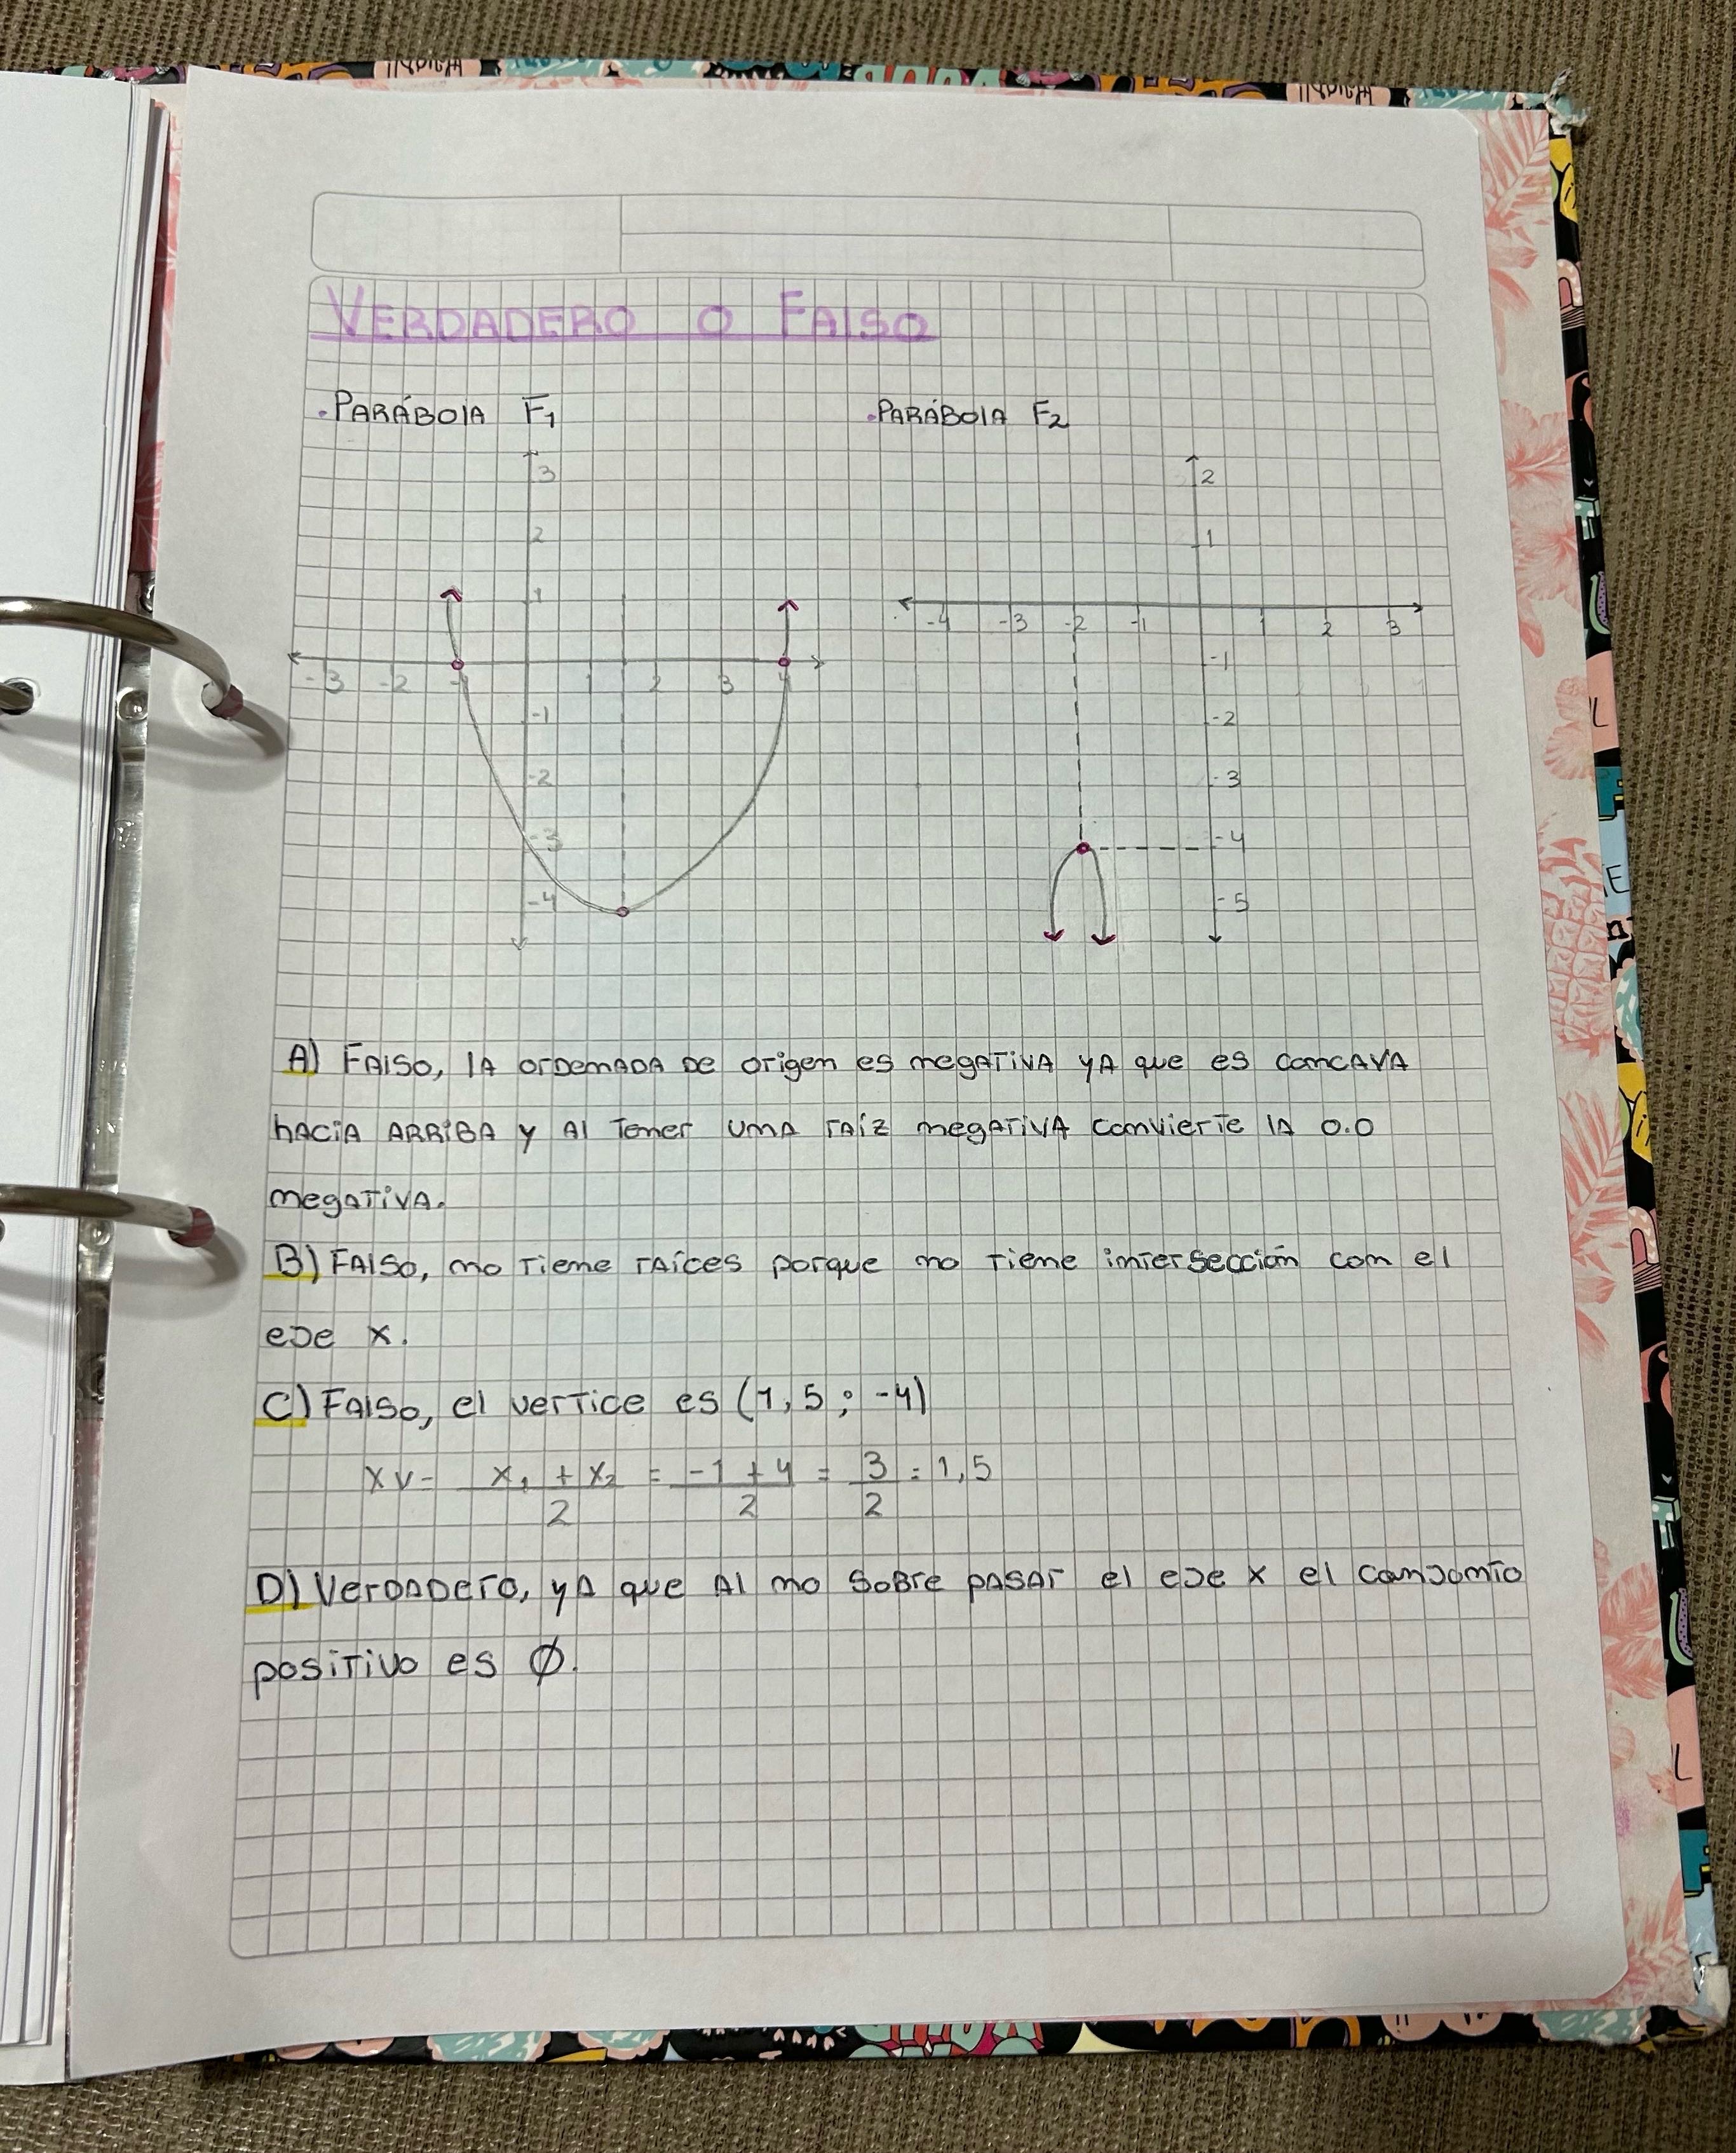 VERDADERO O FALSO
.PARÁBOLA F1
.PARÁBOLA F2
3
2
1
-3 -2 -1 1 2 3 4
-1
-2
-3
-4
2
1
-4 -3 -2 -1 1 2 3
-1
-2
-3
-4
-5
A) FALSO, LA ORDENADA DE origen es negATIVA yA que es CONCAVA
hACIA ARRIBA y Al Tener UNA rAíz negATIVA convierTe lA O.O
negATIVA.
B) FALSO, no Tiene rAíces porque no Tiene inTersección con el
eje x.
C) FALSO, el verTice es (1,5 ; -4)
xv = x1 + x2 / 2 = -1 + 4 / 2 = 3 / 2 = 1,5
D) VerDADero, yA que Al no SoBre pASAr el eje x el conjonTo
posiTivo es Ø.